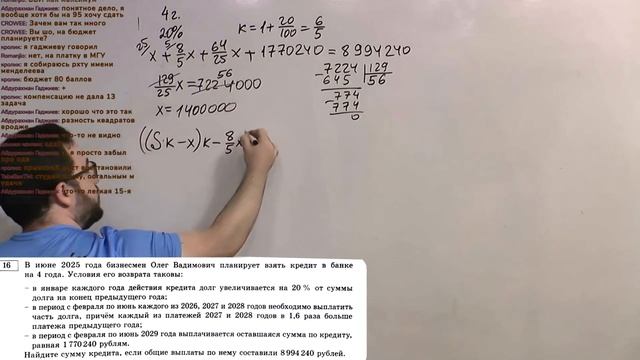 CROWEE: Зачем вам так много
CROWEE: Вы шо, на бюджет
планируете?
кролик: я гаджиеву говорил
Romanjlo: нет, на платку в МГУ
кролик: я собираюсь рхту имени
менделеева
кролик: бюджет 80 баллов
Абдурахман Гаджиев: +
кролик: компенсацию не дала 13
задача
Абдурахман Гаджиев: хорошо что это так
Абдурахман Гаджиев: разность квадратов
вроде
4г.
20%
k = 1 + 20/100 = 6/5
25/25 x + 8/5 x + 64/25 x + 1770240 = 8994240
129/25 x = 7224000
56
x = 1400000
7224 | 129
645 | 56
774
774
0
((S·k − x)k − 8/5 x
16
В июне 2025 года бизнесмен Олег Вадимович планирует взять кредит в банке
на 4 года. Условия его возврата таковы:
– в январе каждого года действия кредита долг увеличивается на 20 % от суммы
долга на конец предыдущего года;
– в период с февраля по июнь каждого из 2026, 2027 и 2028 годов необходимо выплатить
часть долга, причём каждый из платежей 2027 и 2028 годов в 1,6 раза больше
платежа предыдущего года;
– в период с февраля по июнь 2029 года выплачивается оставшаяся сумма по кредиту,
равная 1 770 240 рублям.
Найдите сумму кредита, если общие выплаты по нему составили 8 994 240 рублей.